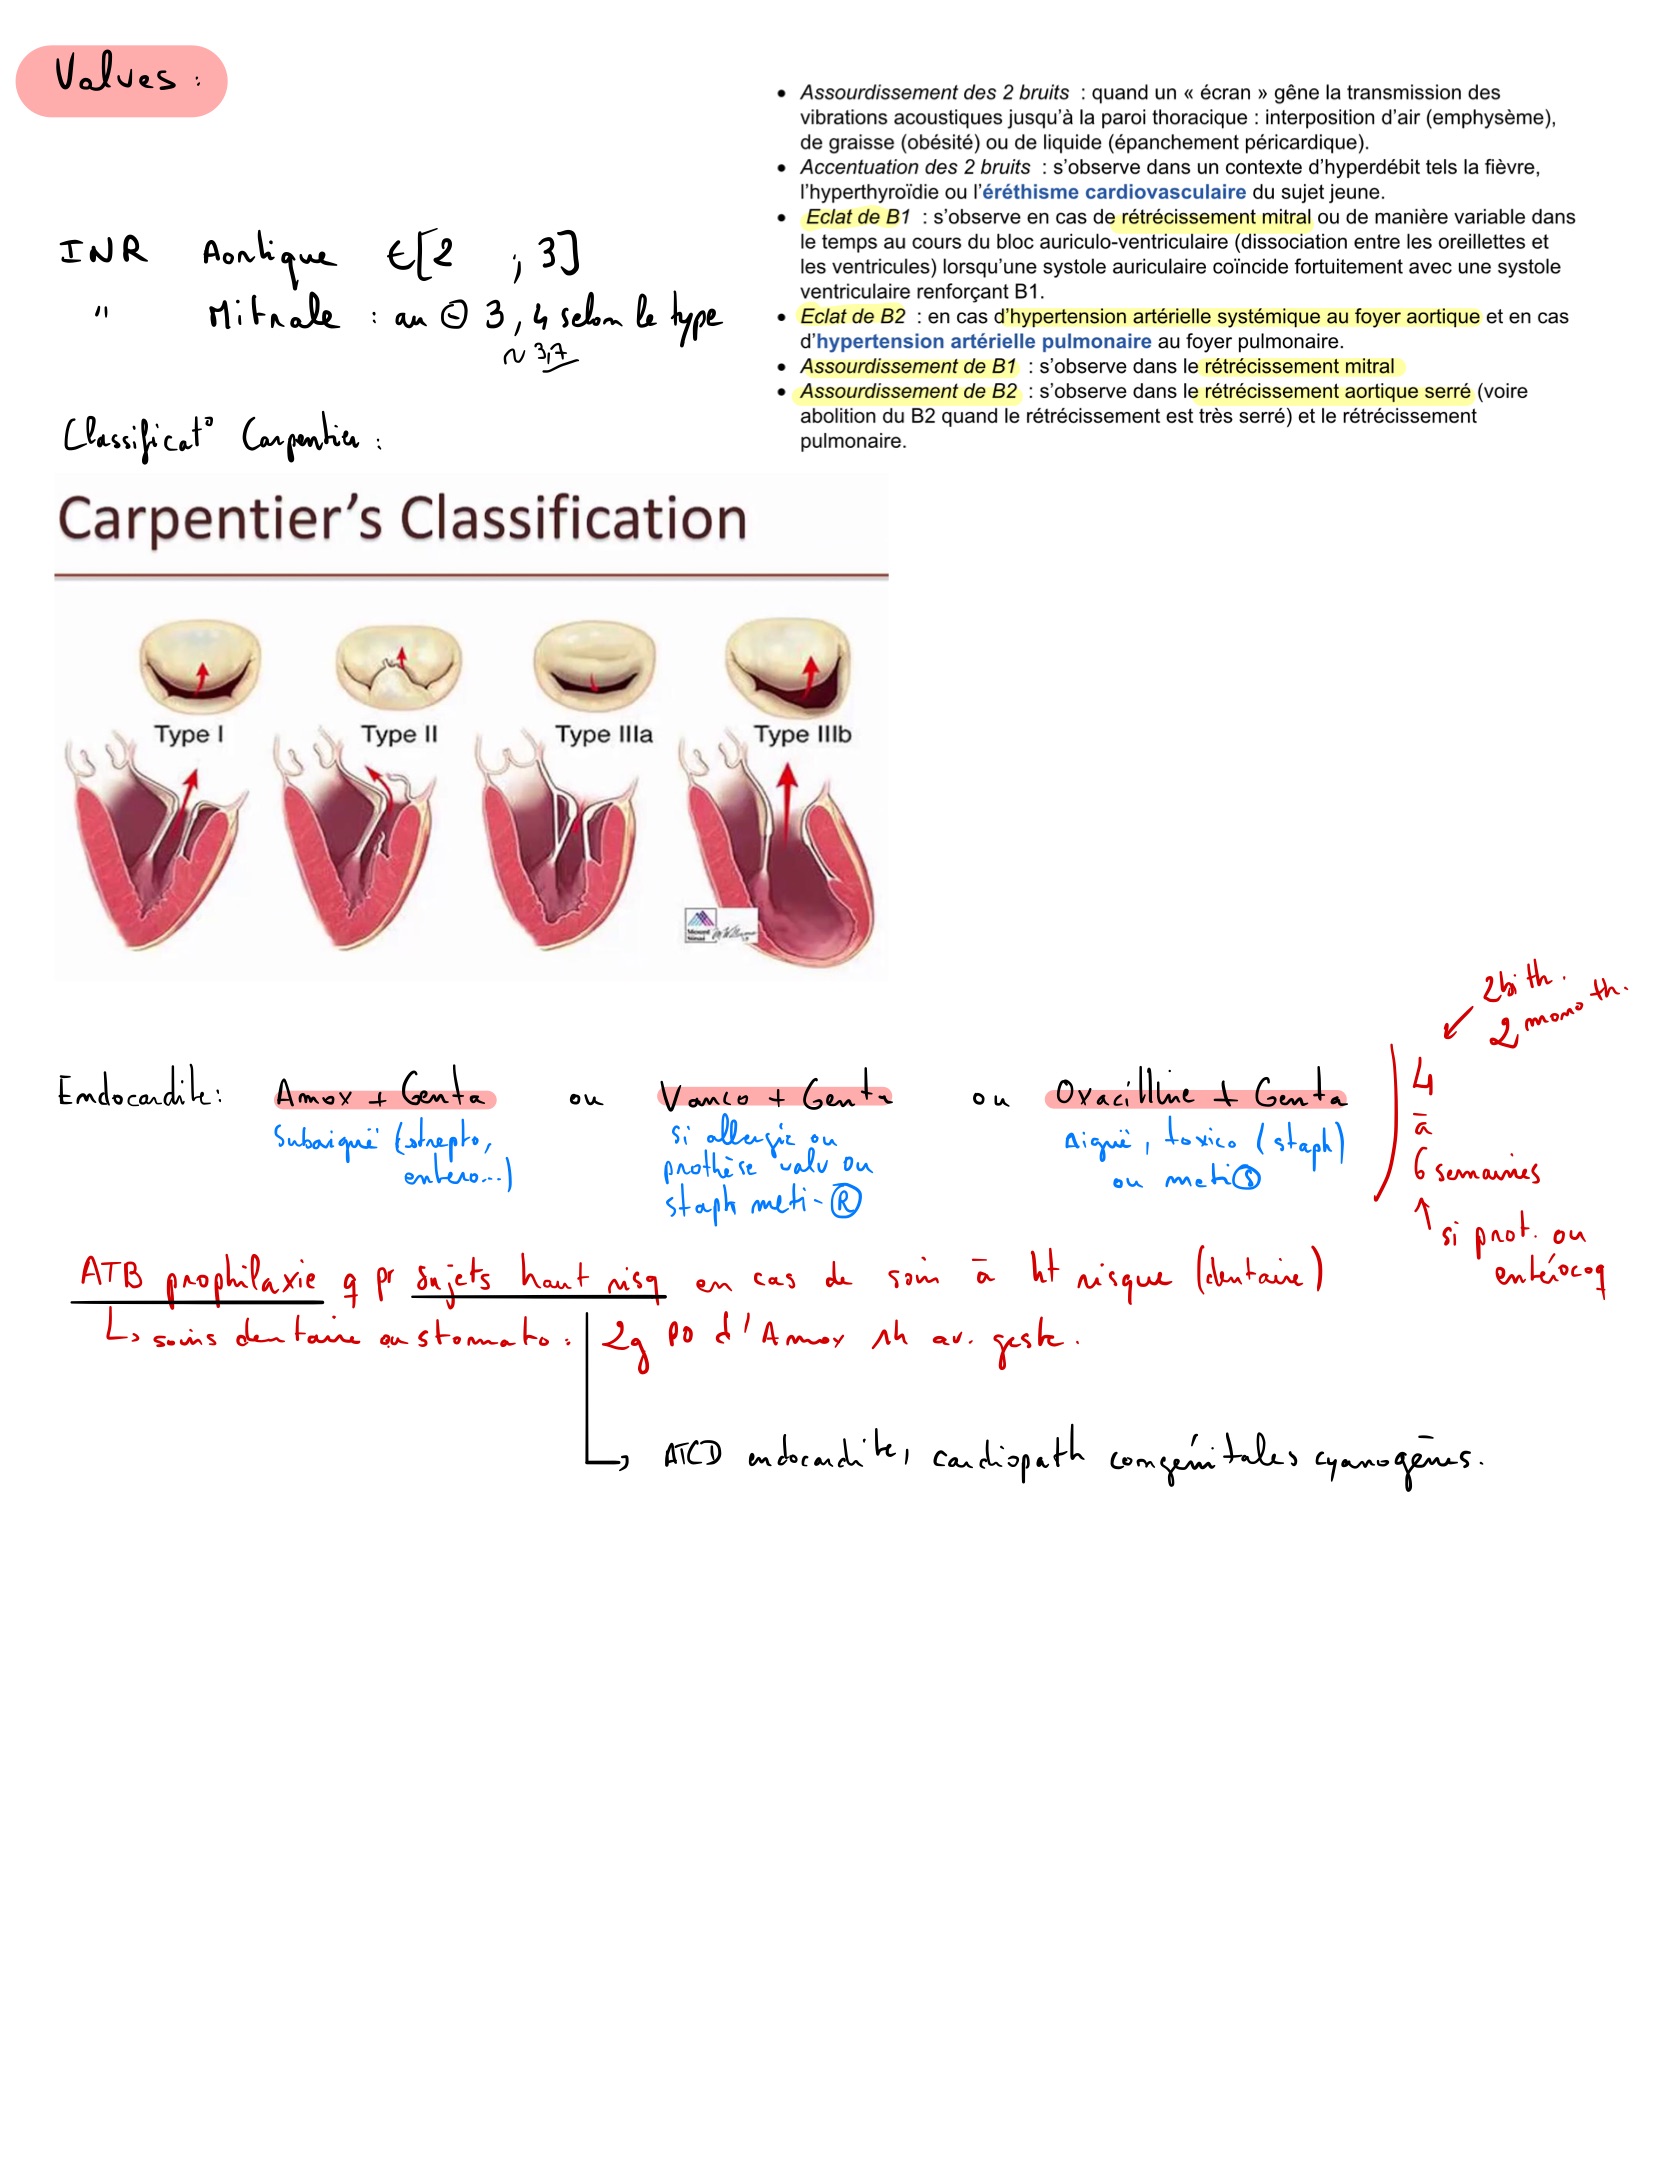 Valves :
• Assourdissement des 2 bruits : quand un « écran » gêne la transmission des
vibrations acoustiques jusqu'à la paroi thoracique : interposition d'air (emphysème),
de graisse (obésité) ou de liquide (épanchement péricardique).
• Accentuation des 2 bruits : s'observe dans un contexte d'hyperdébit tels la fièvre,
l'hyperthyroïdie ou l'éréthisme cardiovasculaire du sujet jeune.
• Eclat de B1 : s'observe en cas de rétrécissement mitral ou de manière variable dans
le temps au cours du bloc auriculo-ventriculaire (dissociation entre les oreillettes et
les ventricules) lorsqu'une systole auriculaire coïncide fortuitement avec une systole
ventriculaire renforçant B1.
• Eclat de B2 : en cas d'hypertension artérielle systémique au foyer aortique et en cas
d'hypertension artérielle pulmonaire au foyer pulmonaire.
• Assourdissement de B1 : s'observe dans le rétrécissement mitral
• Assourdissement de B2 : s'observe dans le rétrécissement aortique serré (voire
abolition du B2 quand le rétrécissement est très serré) et le rétrécissement
pulmonaire.
INR Aortique ∈[2 ; 3]
" Mitrale : au ⊖ 3, 4 selon le type
~ 3,7
Classificat° Carpentier :
Carpentier's Classification
Type I Type II Type IIIa Type IIIb
2 bith.
2 mono th.
Endocardite: Amox + Genta ou Vanco + Genta ou Oxacilline + Genta
Subaiguë (strepto,
entero...)
si allergie ou
prothèse valv ou
staph meti-Ⓡ
Aiguë, toxico (staph)
ou metiⓈ
4
à
6 semaines
si prot. ou
entérocoq
ATB prophilaxie q pr sujets haut risq en cas de soin à ht risque (dentaire)
↳ soins dentaire ou stomato : 2g PO d'Amox 1h av. geste.
↳ ATCD endocardite, cardiopath congénitales cyanogènes.